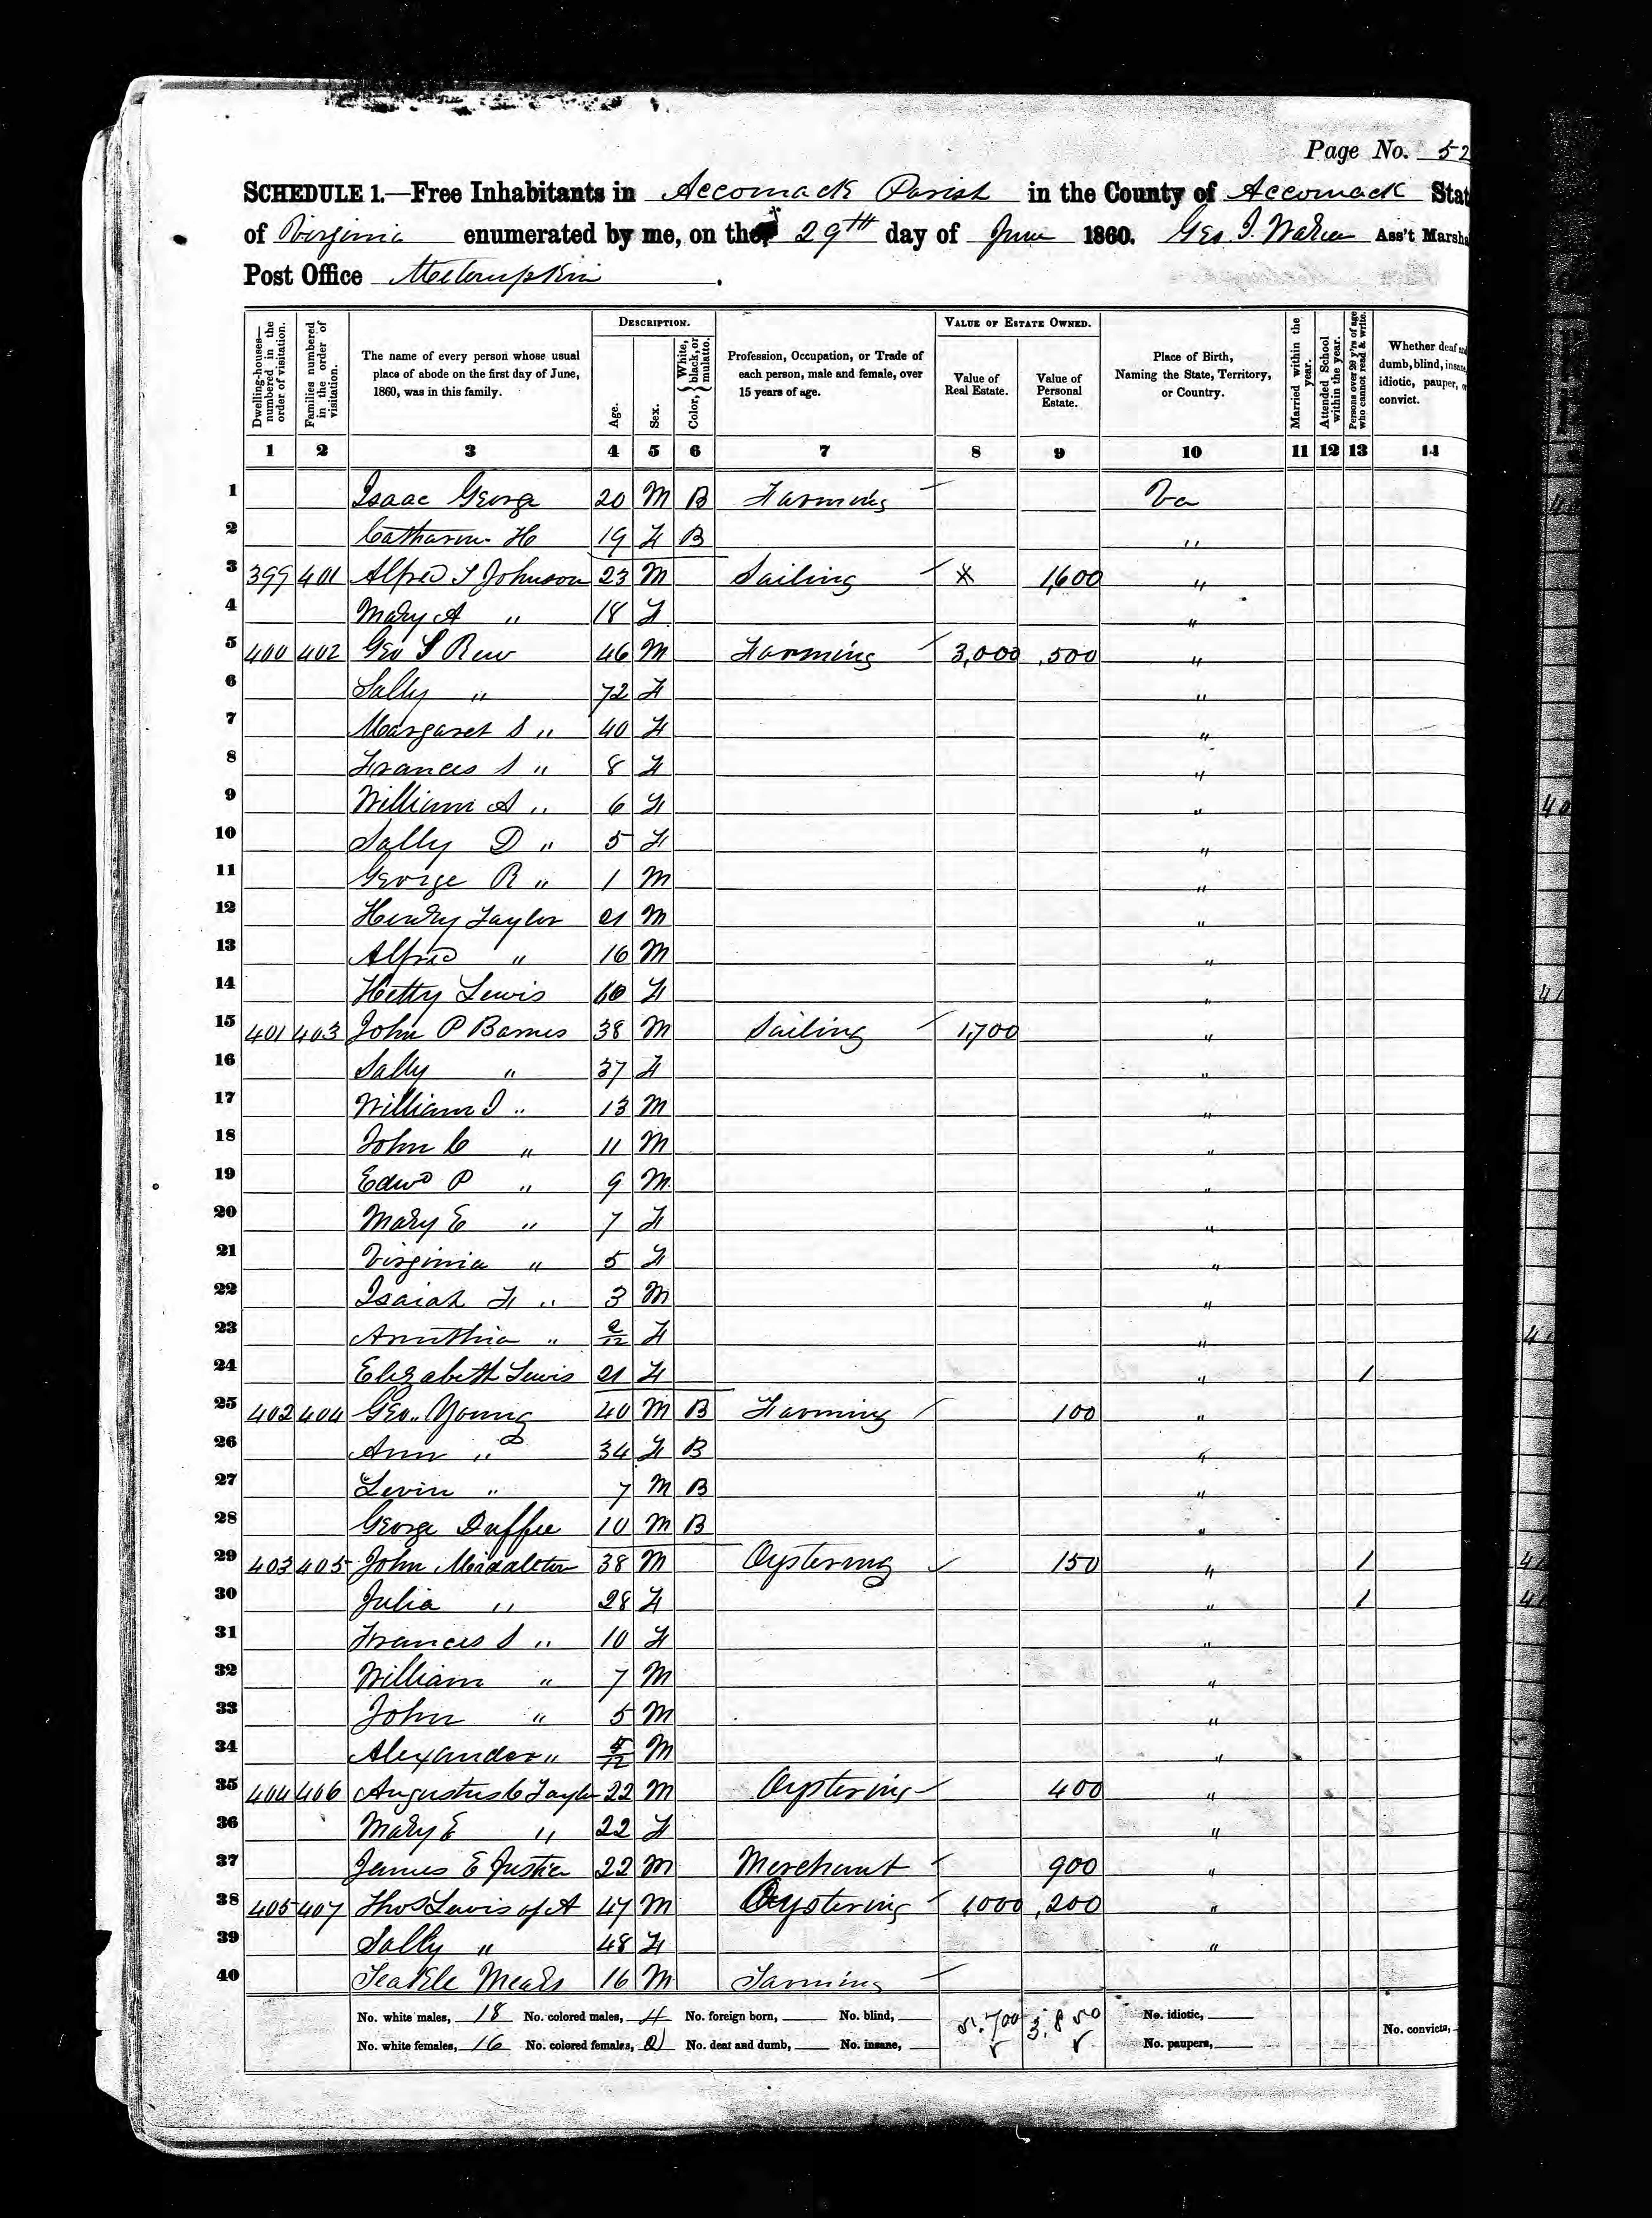 Page No. 52
SCHEDULE 1.—Free Inhabitants in Accomack Parish in the County of Accomack Stat
of Virginia enumerated by me, on the 29th day of June 1860. Geo Ass't Marsha
Post Office
DESCRIPTION. VALUE OF ESTATE OWNED.
Dwelling-houses—numbered in the order of visitation. Families numbered in the order of visitation. The name of every person whose usual place of abode on the first day of June, 1860, was in this family. Age. Sex. Color, { White, black, or mulatto. Profession, Occupation, or Trade of each person, male and female, over 15 years of age. Value of Real Estate. Value of Personal Estate. Place of Birth, Naming the State, Territory, or Country. Married within the year. Attended School within the year. Persons over 20 y'rs of age who cannot read & write. Whether deaf and dumb, blind, insane, idiotic, pauper, or convict.
1 2 3 4 5 6 7 8 9 10 11 12 13 14
1 Isaac George 20 M B Farming Va
2 Catharine H 19 F B "
3 399 401 Alfred S Johnson 23 M Sailing 1,600 "
4 Mary A " 18 F "
5 400 402 Geo S Rew 46 M Farming 3,000 500 "
6 Sally " 72 F "
7 Margaret S " 40 F "
8 Frances S " 8 F "
9 William A " 6 F "
10 Sally D " 5 F "
11 George R " 1 M "
12 Henry Taylor 21 M "
13 Alfred " 16 M "
14 Hetty Lewis 60 F "
15 401 403 John P Barnes 38 M Sailing 1,700 "
16 Sally " 37 F "
17 William J " 13 M "
18 John C " 11 M "
19 Edwd P " 9 M "
20 Mary E " 7 F "
21 Virginia " 5 F "
22 Isaiah F " 3 M "
23 " 2/12 F "
24 Elizabeth Lewis 21 F " 1
25 402 404 Geo. Young 40 M B Farming 100 "
26 Ann " 34 F B "
27 Levin " 7 M B "
28 George Duffee 10 M B "
29 403 405 John Middleton 38 M Oystering 150 " 1
30 Julia " 28 F " 1
31 Frances S " 10 F "
32 William " 7 M "
33 John " 5 M "
34 Alexander " 5/12 M "
35 404 406 Augustus C Taylor 22 M Oystering 400 "
36 Mary E " 22 F "
37 James E Justice 22 M Merchant 900 "
38 405 407 Thos Lewis of A 47 M Oystering 1,000 200 "
39 Sally " 48 F "
40 Teakle Mears 16 M Farming
No. white males, 18 No. colored males, 4 No. foreign born, No. blind, 5,700 3,850 No. idiotic,
No. white females, 16 No. colored females, 2 No. deaf and dumb, No. insane, No. paupers, No. convicts,